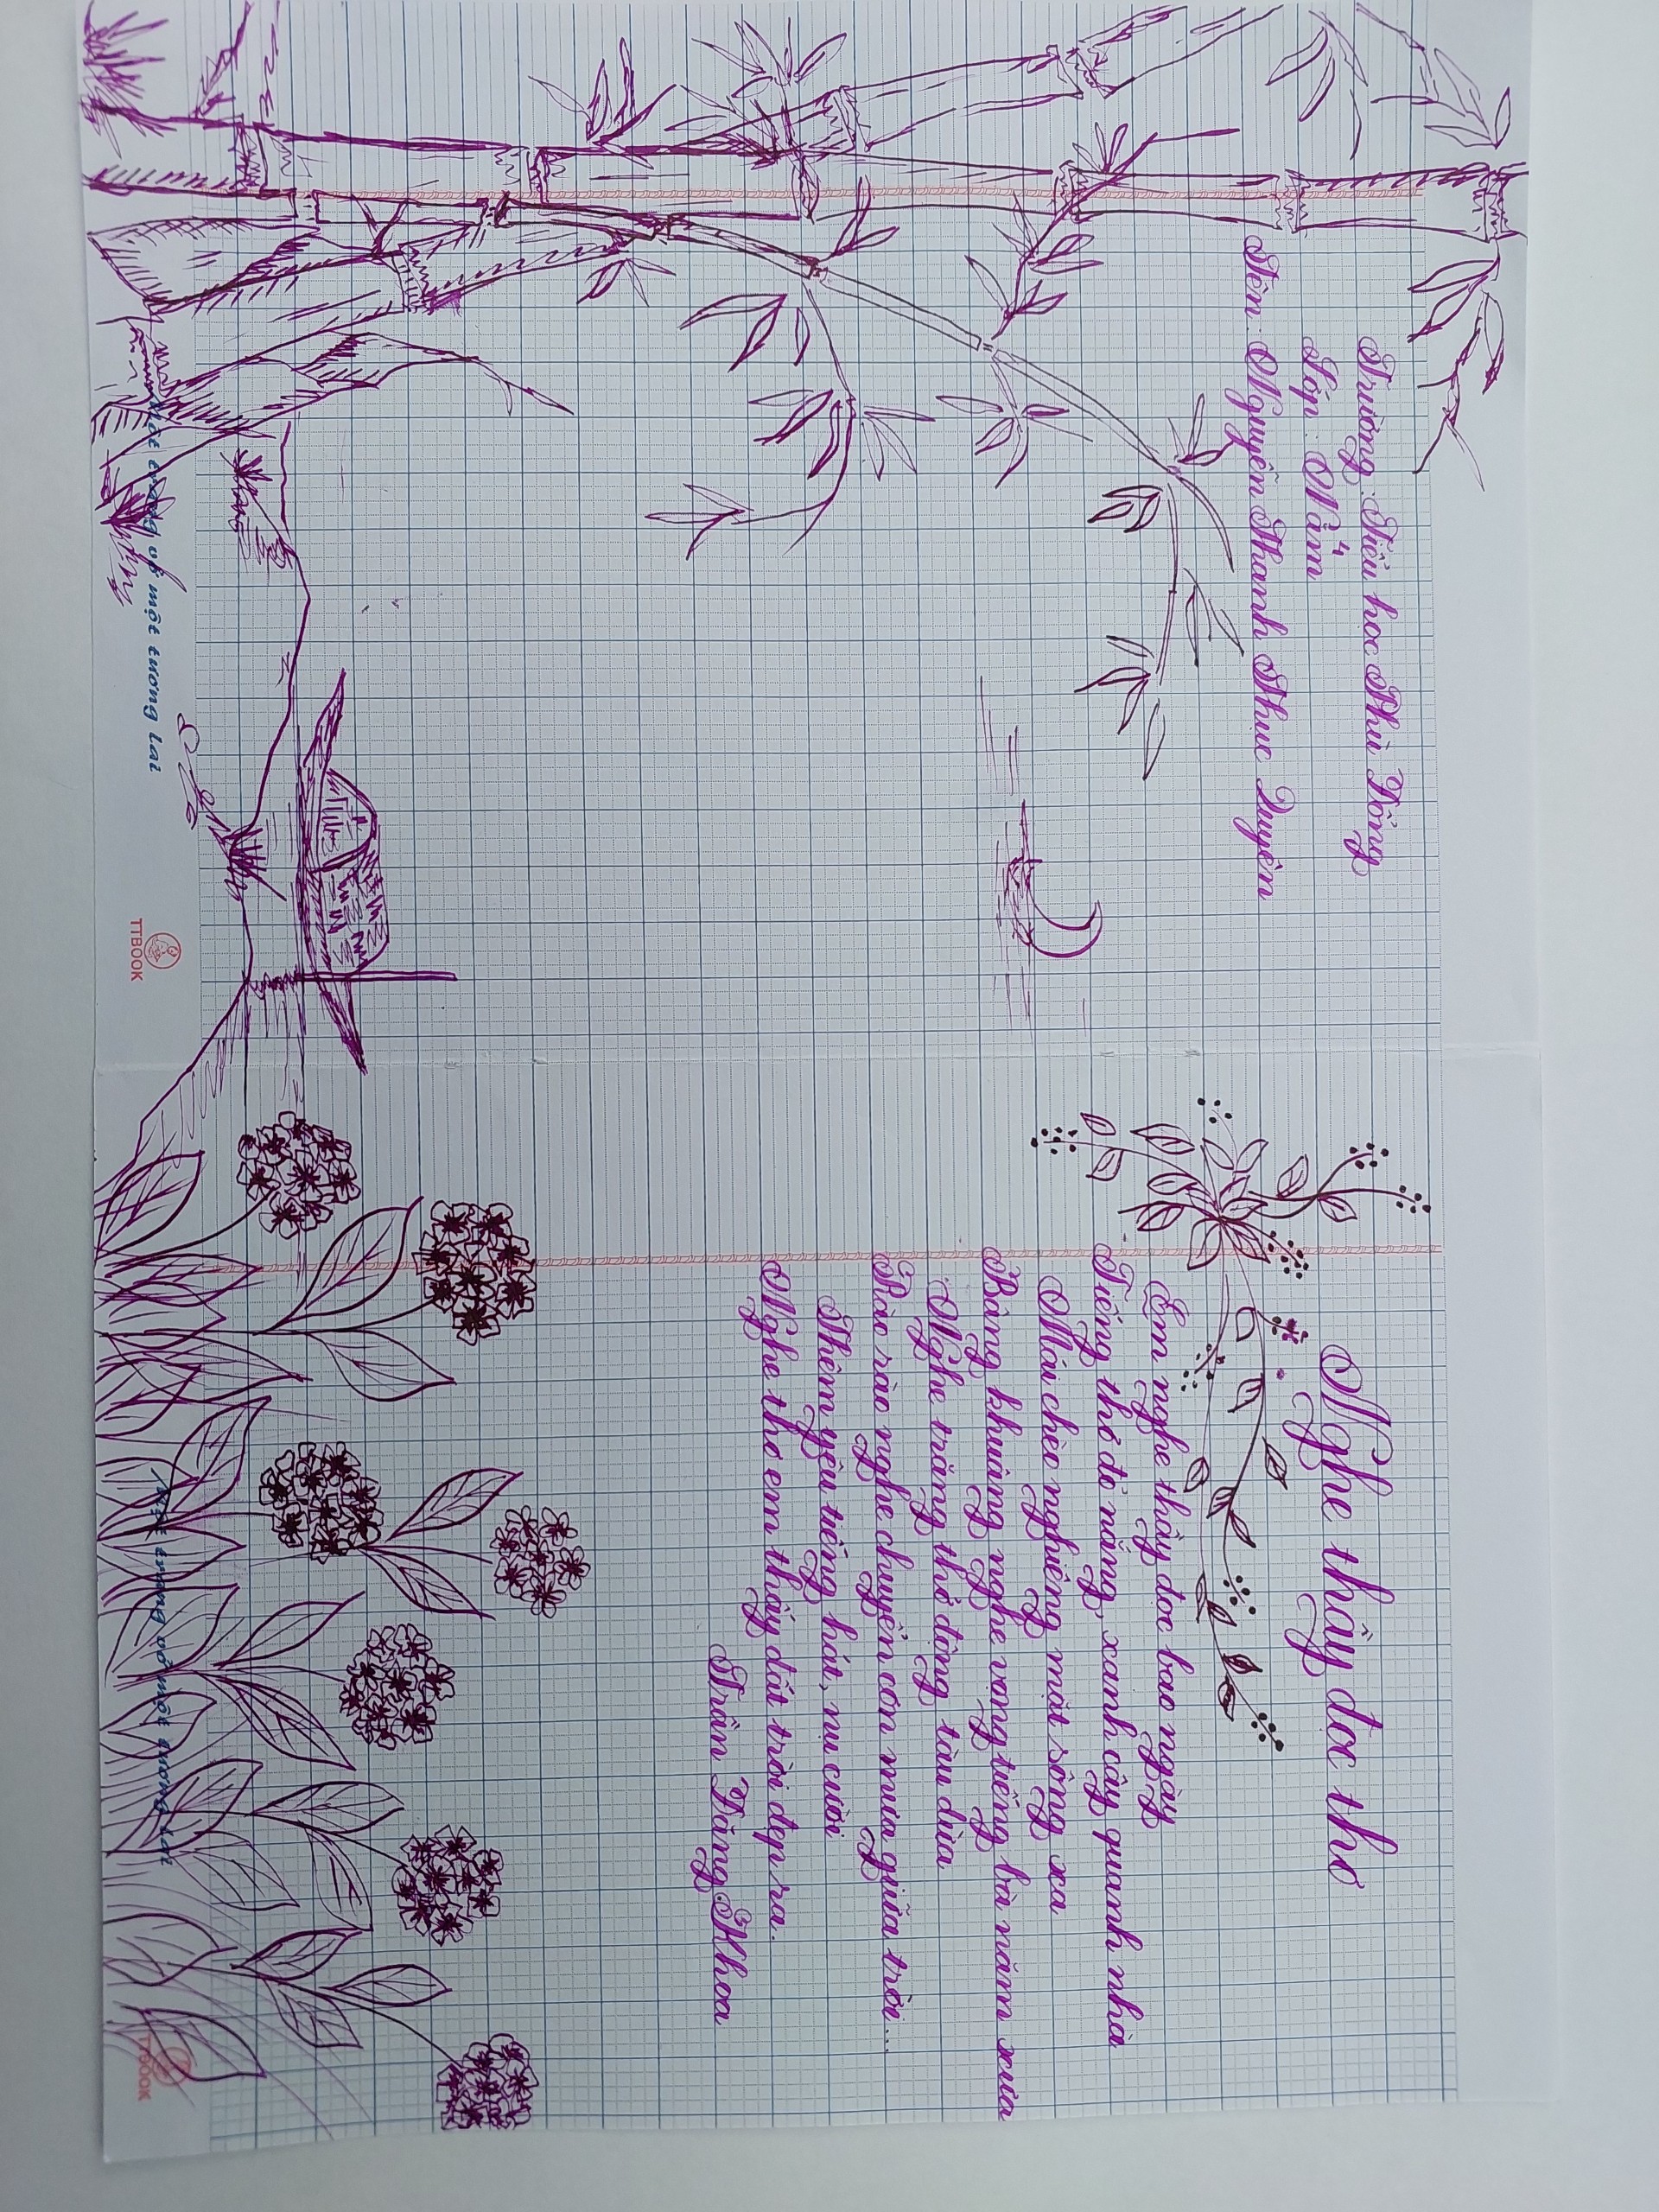 Trường: Tiểu học Phù Đổng
Lớp: Năm
Tên: Nguyễn Thanh Thục Quyên
Một trang vở một tương lai
TTBOOK
Nghe thầy đọc thơ
Em nghe thầy đọc bao ngày
Tiếng thơ đỏ nắng, xanh cây quanh nhà
Mái chèo nghiêng mặt sông xa
Bâng khuâng nghe vọng tiếng bà năm xưa
Nghe trăng thở động tàu dừa
Rào rào nghe chuyển cơn mưa giữa trời...
Thêm yêu tiếng hát, nụ cười
Nghe thơ em thấy đất trời đẹp ra.
Trần Đăng Khoa
Một trang vở một tương lai
TTBOOK